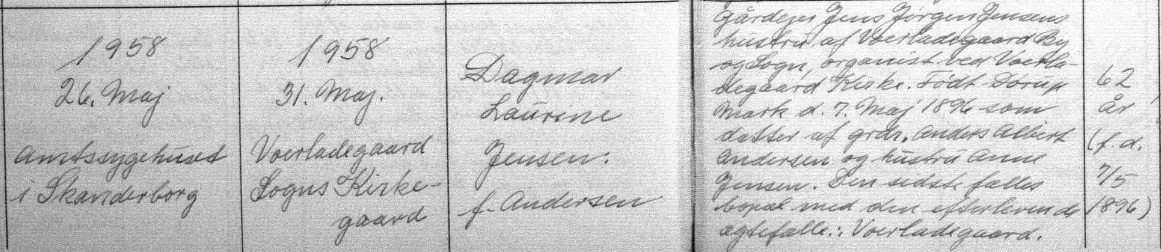 1958
26. Maj
Amtssygehuset
i Skanderborg
1958
31. Maj.
Voerladegaard
Sogns Kirke-
gaard
Dagmar
Laurine
Jensen.
f. Andersen
Gårdejer Jens Jørgen Jensens
hustru af Voerladegaard By
og Sogn, organist ved Voerla-
degaard Kirke. Født Dørup
Mark d. 7. Maj 1896 som
datter af grdr. Anders Albert
Andersen og hustru Anne
Jensen. Den sidste fælles
bopæl med den efterlevende
ægtefælle: Voerladegaard.
62
år
(f. d.
7/5
1896)